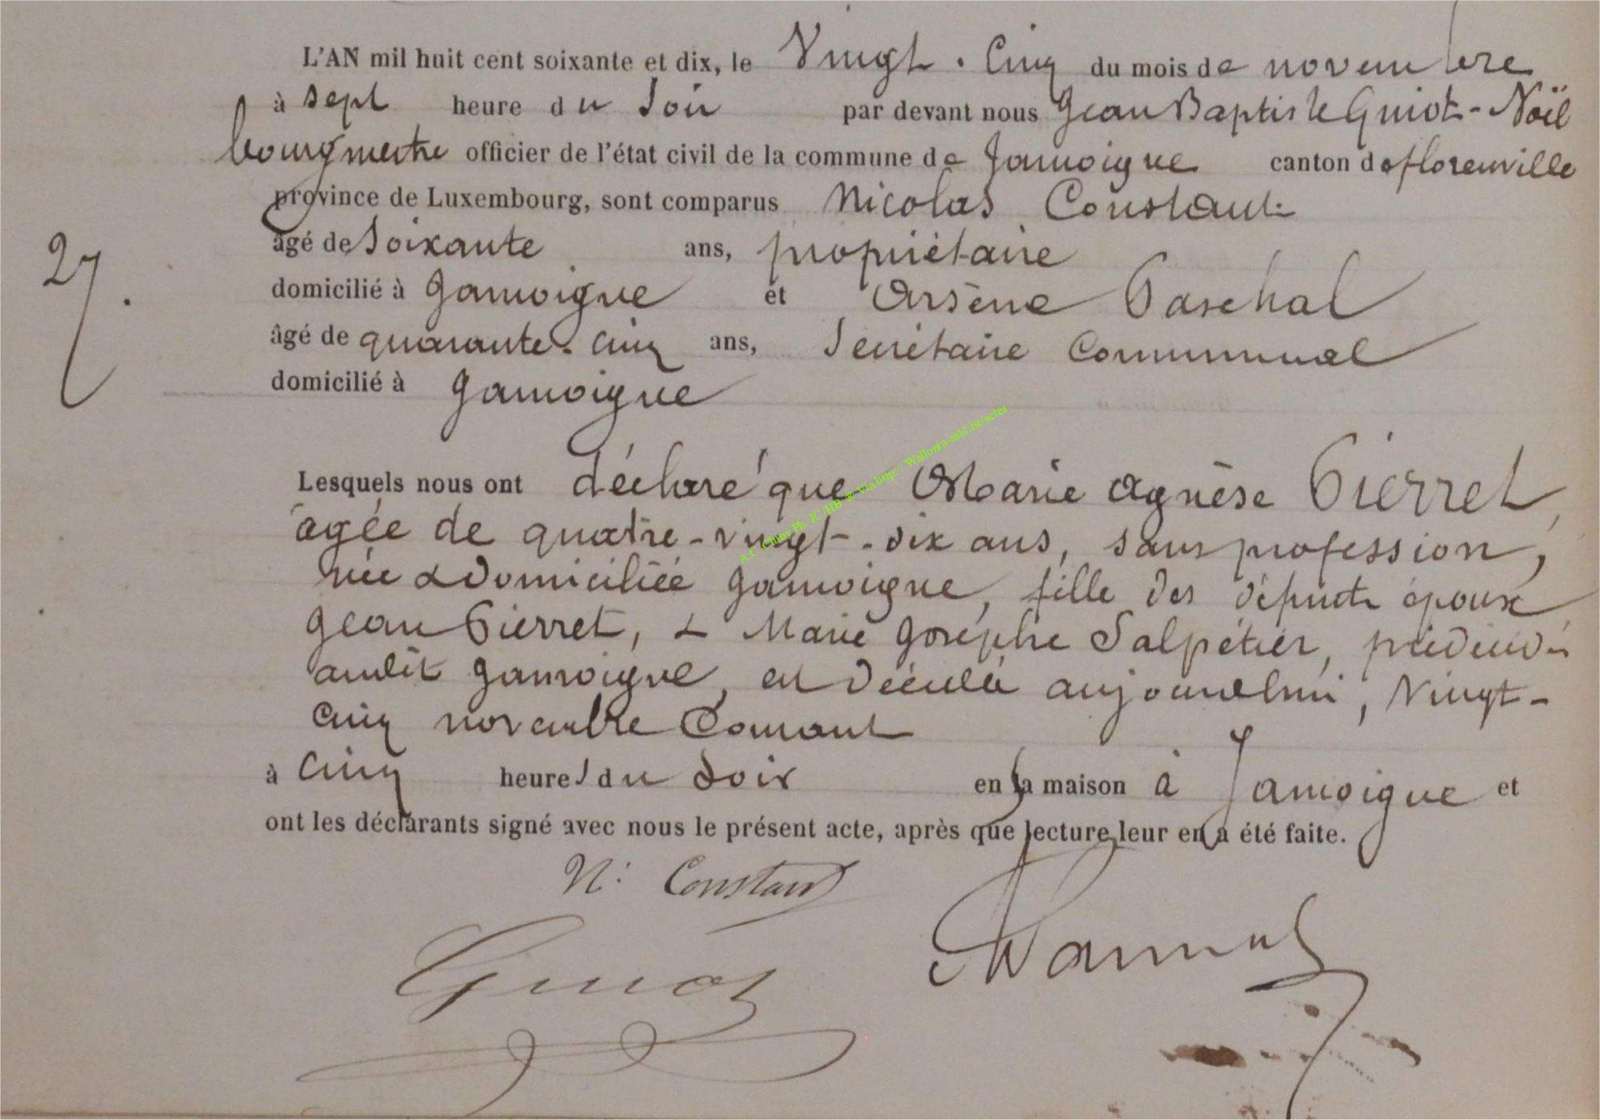 L'AN mil huit cent soixante et dix, le Vingt-Cinq du mois de novembre
à sept heure du Soir par devant nous Jean Baptiste Guiot-Noël
bourgmestre officier de l'état civil de la commune de Jamoigne canton de florenville
province de Luxembourg, sont comparus Nicolas Constant
âgé de Soixante ans, propriétaire
27.
domicilié à Jamoigne et Arsène Paschal
âgé de quarante-cinq ans, Secrétaire Communal
domicilié à Jamoigne
Lesquels nous ont déclaré que Marie Agnèse Pierret,
agée de quatre-vingt-dix ans, sans profession,
née & domiciliée Jamoigne, fille des défunts époux
Jean Pierret, & Marie Josèphe Salpétier, prédécédés
audit Jamoigne, est décédée aujourd'hui, Vingt-
cinq novembre Courant
à cinq heures du soir en sa maison à Jamoigne et
ont les déclarants signé avec nous le présent acte, après que lecture leur en a été faite.
N. Constant
Guiot